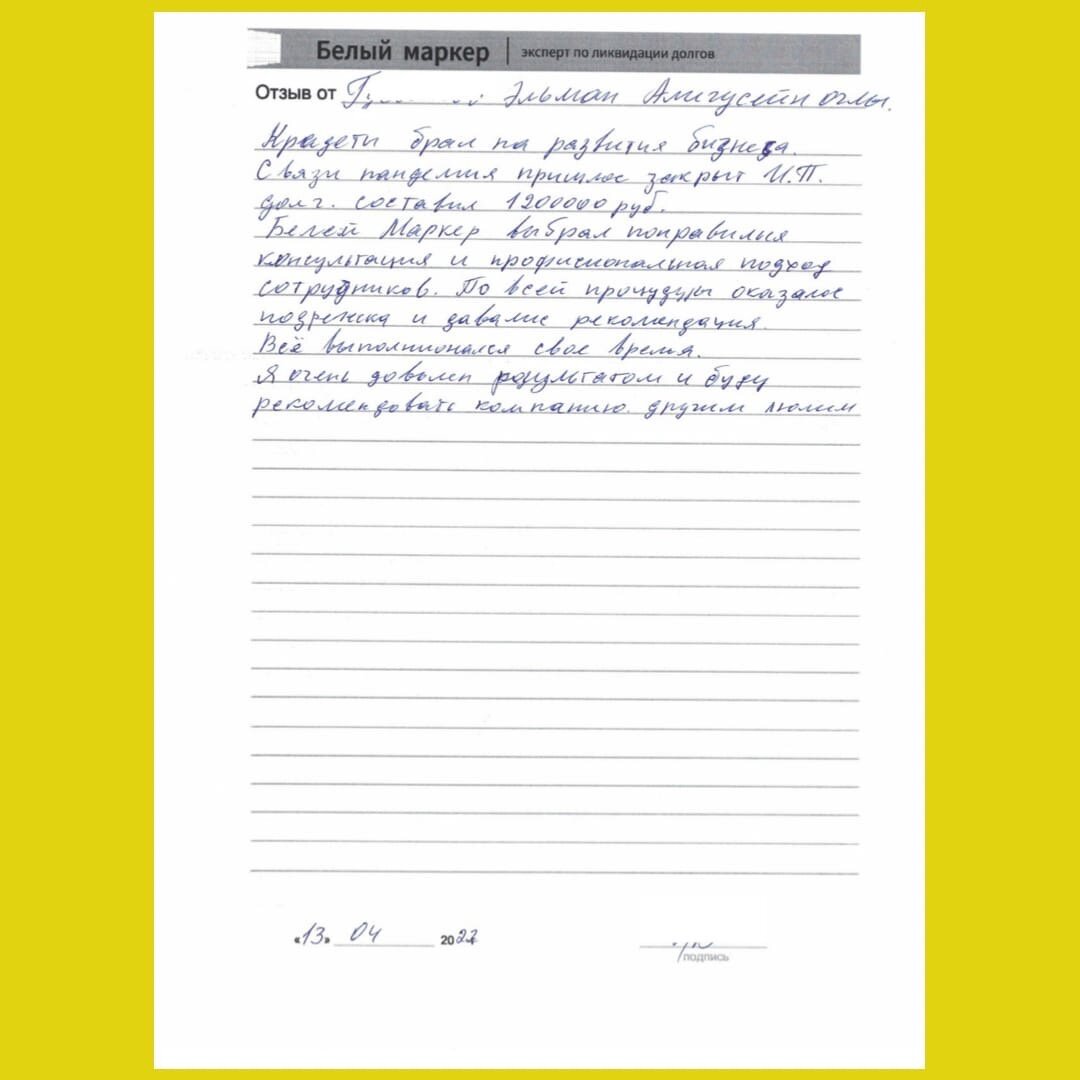 Белый маркер | эксперт по ликвидации долгов
Отзыв от Эльман Алигусейн оглы.
Кредеты брал на развития бизнеса.
Связи пандемия пришлос закрыт И.П.
долг. составил 1200000 руб.
Белей Маркер выбрал понравилия
консультация и профисиональная подход
сотрудников. По всей процудуры оказалос
подрежка и давалис рекомендация.
Всё выполнионался свое время.
Я очень доволен результатом и буду
рекомендовать компанию. другим люлим
«13» 04 2022
подпись